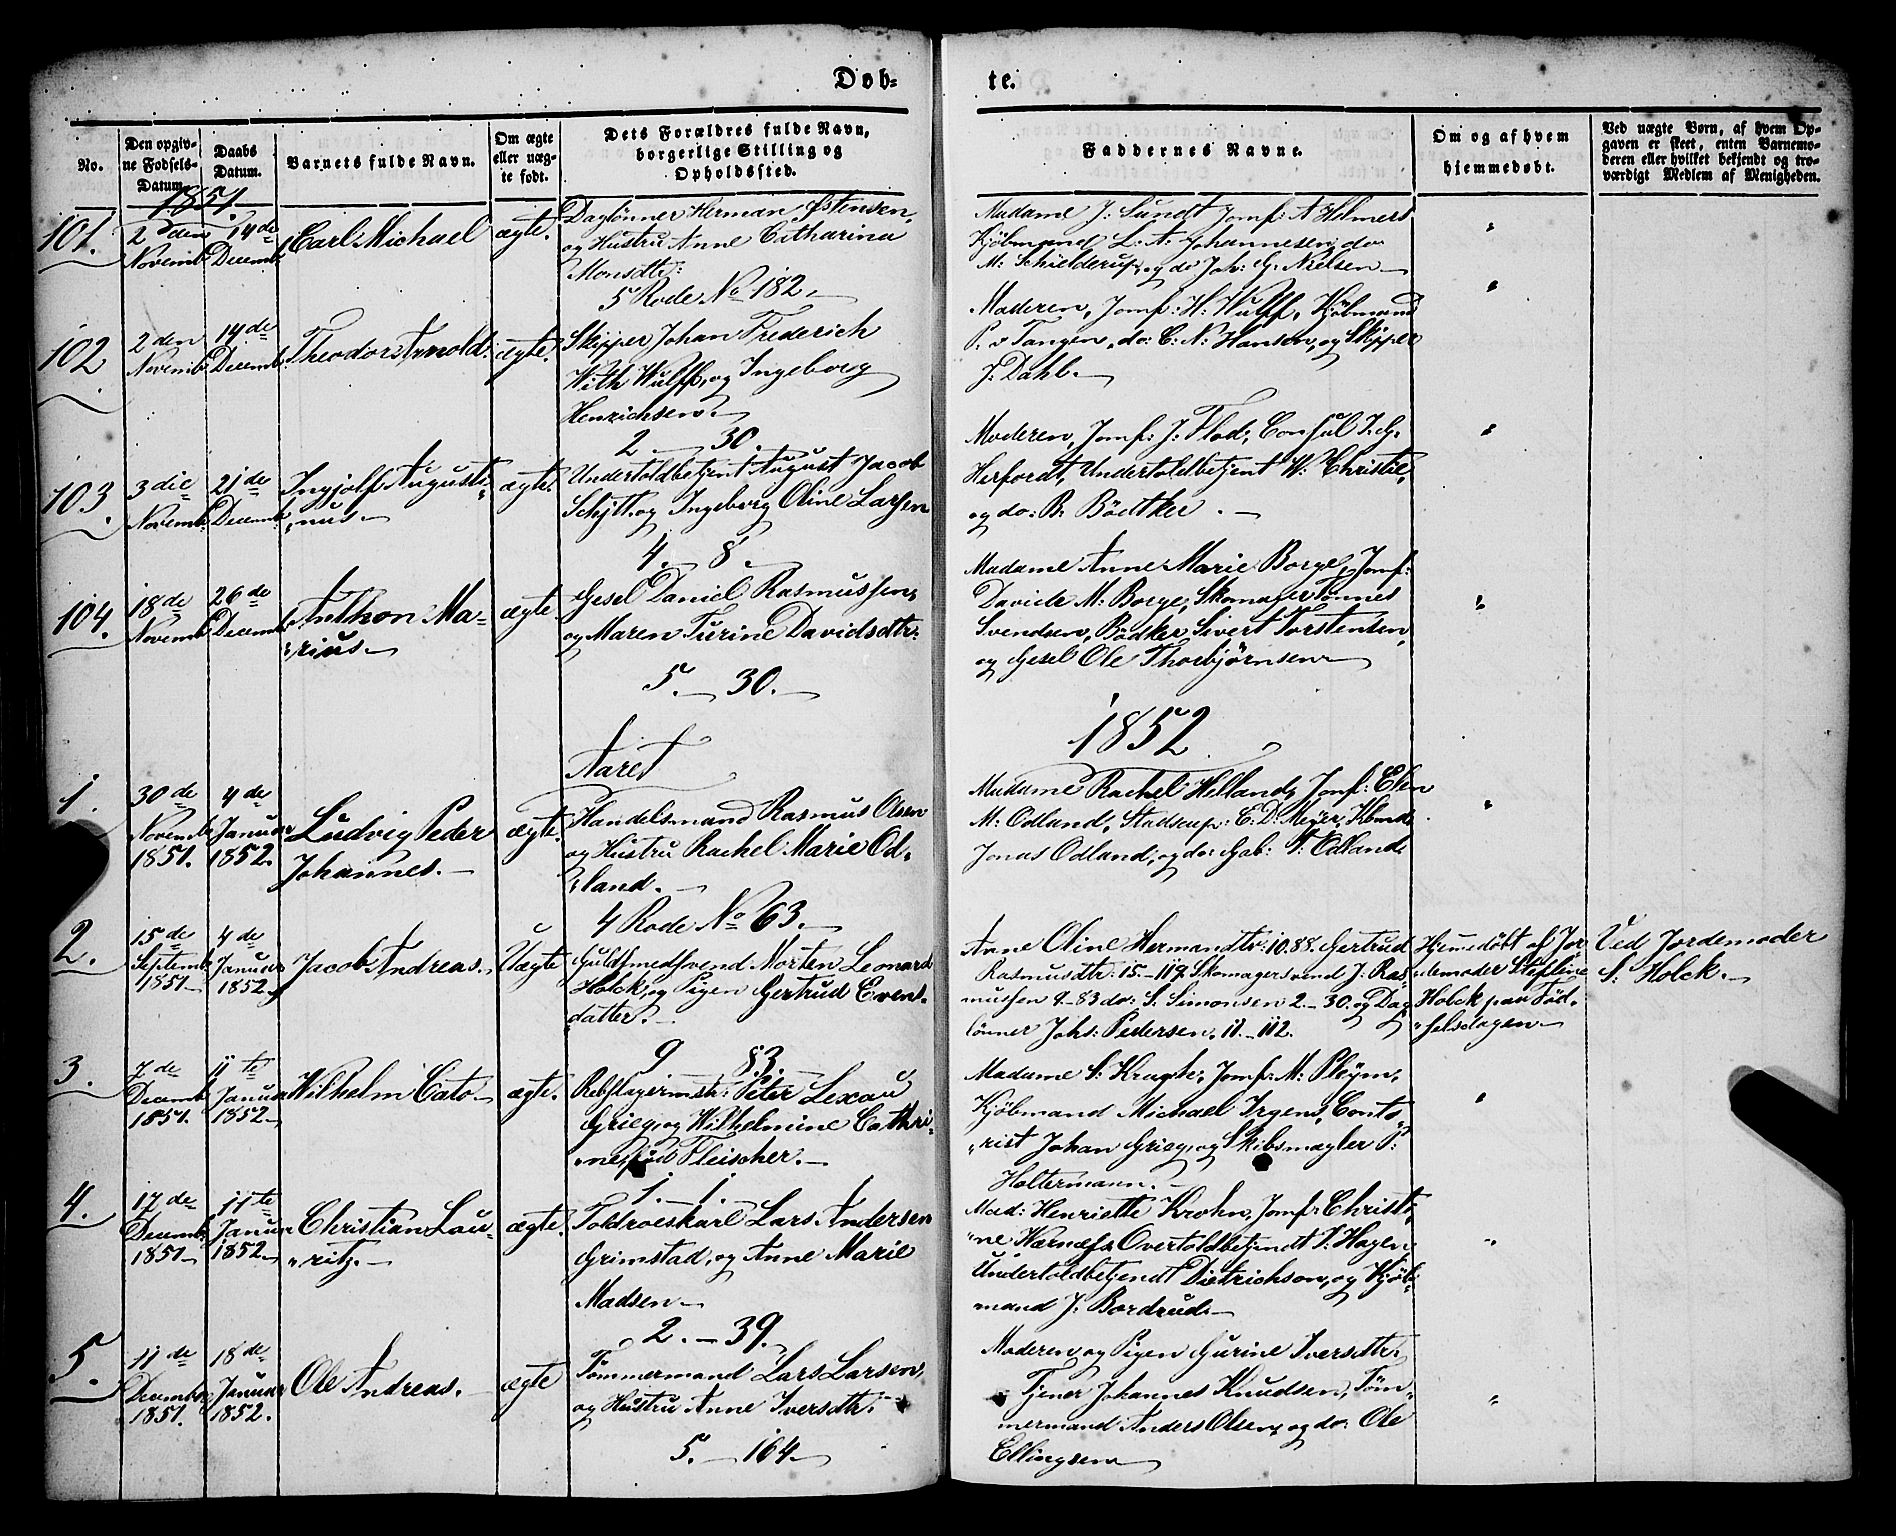 Døb-
te.
No.
Den opgiv-
ne Fødsels-
Datum.
Daabs
Datum.
Barnets fulde Navn.
Om ægte
eller uæg-
te født.
Dets Forældres fulde Navn,
borgerlige Stilling og
Opholdssted.
Faddernes Navne.
Om og af hvem
hjemmedøbt.
Ved uægte Børn, af hvem Op-
gaven er skeet, enten Barnemo-
deren eller hvilket bekjendt og tro-
værdigt Medlem af Menigheden.
1851.
101.
2den
Novemb:
14de
Decemb:
Carl Michael
ægte.
Daglønner Herman Østensen,
og Hustru Anne Catharina
Monsdtr:
5 Rode No 182.
Madame J. Sundt, Jomf: A Helmers
Kjöbmand L. A. Johannesen, do
M: Schielderup, og do Joh: G: Nielsen
102
2den
Novemb:
14de
Decemb:
Theodor Arnold.
ægte.
Skipper Johan Frederich
With Wulff, og Ingeborg
Henrichsen.
2. - 30.
Moderen, Jomf: H: Wulff, Kjöbmand
P. v Tangen, do: C: N: Hansen, og Skipper
J. Dahl.
103.
3die
Novemb:
21de
Decemb:
Ingjolf Augusti-
nus.
ægte.
Undertoldbetjent August Jacob
Schjtt, og Ingeborg Oline Larsen
4. - 8.
Moderen, Jomf: J: Flod, Consul I. G.
Herfordt, Undertoldbetjent W: Christie,
og do: B: Bödtker.
104.
18de
Novemb:
26de
Decemb:
Anthon Ma-
rius.
ægte.
Gesel Daniel Rasmussen,
og Maren Turine Davidsdtr:
5. - 30.
Madame Anne Marie Borge, Jomf:
Davide M: Borge, Skomager Tönnes
Svendsen, Bödker Sivert Torstensen,
og Gesel Ole Thorbjörnsen
Aaret
1852
1.
30de
Novemb:
1851.
4de
Januar
1852.
Ludvig Peder
Johannes.
ægte.
Handelsmand Rasmus Olsen
og Hustru Rachel Marie Od-
land.
4 Rode No 63.
Madame Rachel Helland, Jomf: Elen
M: Odland, Stadscap: E: D: Meyer, Kbmd
Jonas Odland, og do: Gab: T: Odland.
2.
15de
Septemb:
1851.
4de
Januar
1852.
Jacob Andreas.
Uægte
Guldsmedsvend Morten Leonard
Holck, og Pigen Gertrud Evens-
datter.
9 83.
Anne Oline Hermandtr: 10.88. Gertrud
Rasmusdtr: 15.-119. Skomagersvend J: Ras-
mussen 9-83 do: S: Simonsen 2.-30. og Dag-
lönner Johs: Pedersen. 11.-112.
Hjemedöbt af Jor
demoder Stefline
Holck paa Föd-
selsdagen
Ved Jordemoder
S: Holck.
3.
7de
Decemb:
1851.
11te
Januar
1852
Wilhelm Cato
ægte.
Rebslagermstr: Peter Lexau
Grieg, og Wilhelmine Cathri-
ne, föd Fleischer.
1. - 1.
Madame S: Kragh, Jomf: M: Pleym,
Kjöbmand Michael Irgens, Conto-
rist Johan Grieg, og Skibsmægler P:
Holtermann.
4.
17de
Decemb:
1851
11te
Januar
1852
Christian Lau-
ritz.
ægte.
Toldroeskarl Lars Andersen
Grimstad, og Anne Marie
Madsen
2. - 39.
Mad: Henriette Krohn, Jomf: Christi-
ne Overtoldbetjendt I: Hagen,
Undertoldbetjendt Dietrichson, og Kjöb-
mand J: Bordrud.
5.
11de
Decemb:
1851.
18de
Januar
1852.
Ole Andreas.
ægte
Tömmermand Lars Larsen,
og Hustru Anne Iversdtr:
5. - 164.
Moderen og Pigen Gurine Iversdtr:
Tjener Johannes Knudsen, Töm-
mermand Anders Olsen, og do: Ole
Ellingsen